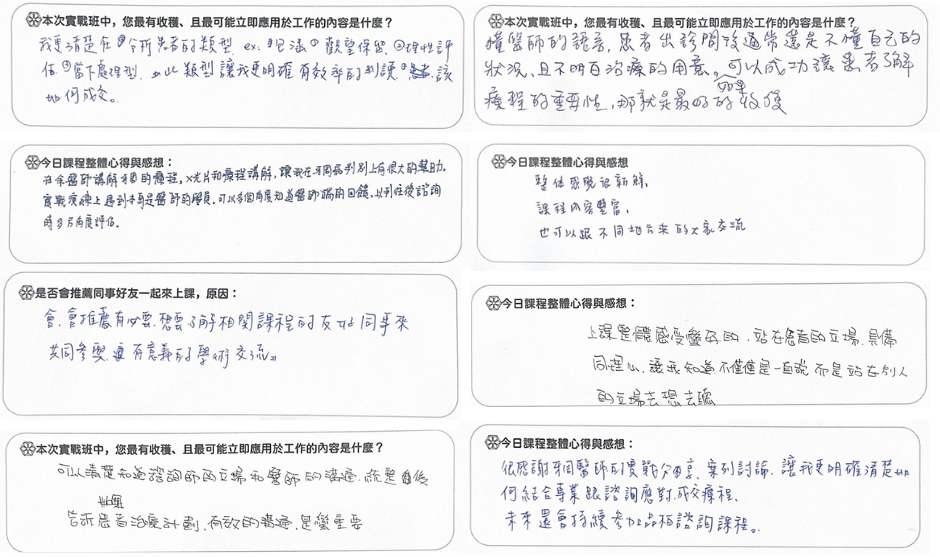 本次實戰班中，您最有收穫、且最可能立即應用於工作的內容是什麼？
我更清楚在分析患者的類型. ex. 觀望保留. ②理性評
估 ③當下處理型. 如此類型讓我更明確有效率的判讀患者. 該
如何成交。
本次實戰班中，您最有收穫、且最可能立即應用於工作的內容是什麼？
懂醫師的語言，患者出診間後通常還是不懂自己的
狀況，且不明白治療的用意。可以成功讓患者了解
療程的重要性，那就是最好的收穫
今日課程整體心得與感想：
在余醫師講解不同的療程，X光片和療程講解，讓我在牙周病判別上有很大的幫助。
實戰演練上遇到本身是醫師的學員，可以多個角度知道醫師端的回饋，以利在後諮詢
時多方角度評估。
今日課程整體心得與感想
整体感覺很新鮮，
課程內容豐富，
也可以跟不同地方來的大家交流
是否會推薦同事好友一起來上課，原因：
會，會推薦有必要、想要了解相關課程的友好同事來
共同參與，更有意義的學術交流。
今日課程整體心得與感想：
上課整體感受蠻好的，站在患者的立場，具備
同理心，讓我知道不僅僅是一直說而是站在別人
的立場去想去聽
本次實戰班中，您最有收穫、且最可能立即應用於工作的內容是什麼？
可以清楚知道諮詢師的立場和醫師的溝通，就是
如何
告訴患者治療計劃，有效的溝通，是蠻重要
今日課程整體心得與感想：
很感謝牙周醫師的實戰分享、案例討論，讓我更明確清楚如
何結合專業跟諮詢應對，成交療程，
未來還會持續參加品柏諮詢課程。